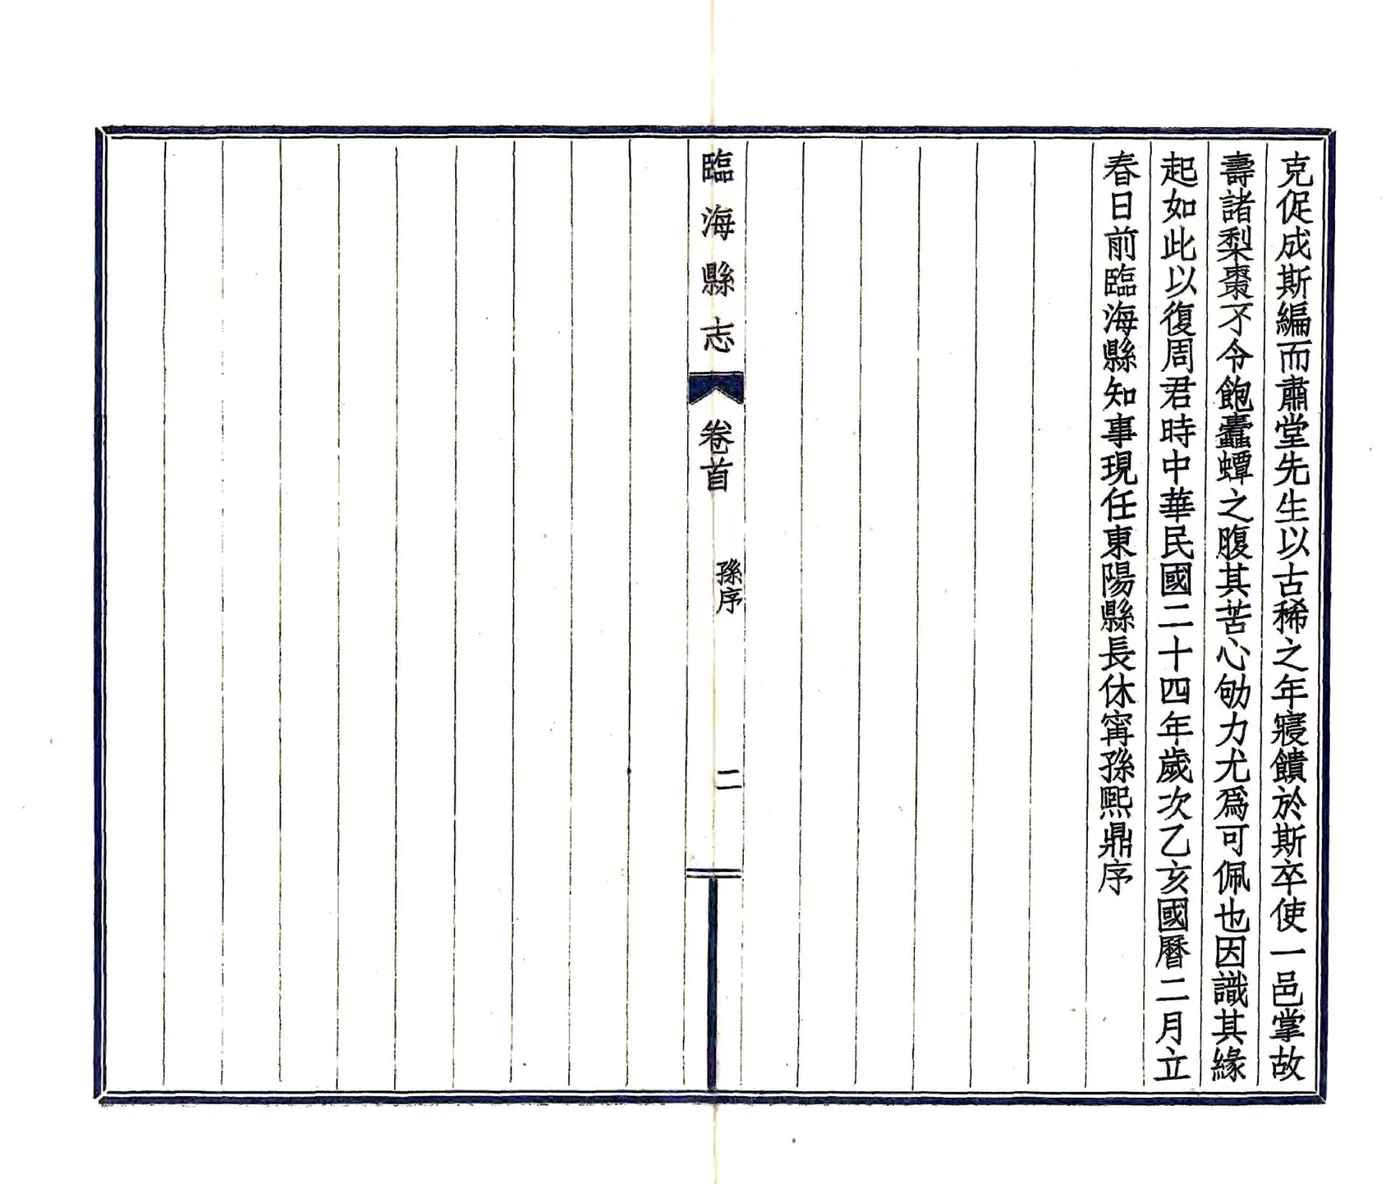 克促成斯編而肅堂先生以古稀之年寢饋於斯卒使一邑掌故
壽諸梨棗不令飽蠹蟫之腹其苦心劬力尤爲可佩也因識其緣
起如此以復周君時中華民國二十四年歲次乙亥國曆二月立
春日前臨海縣知事現任東陽縣長休甯孫熙鼎序
臨海縣志
卷首
孫序
二